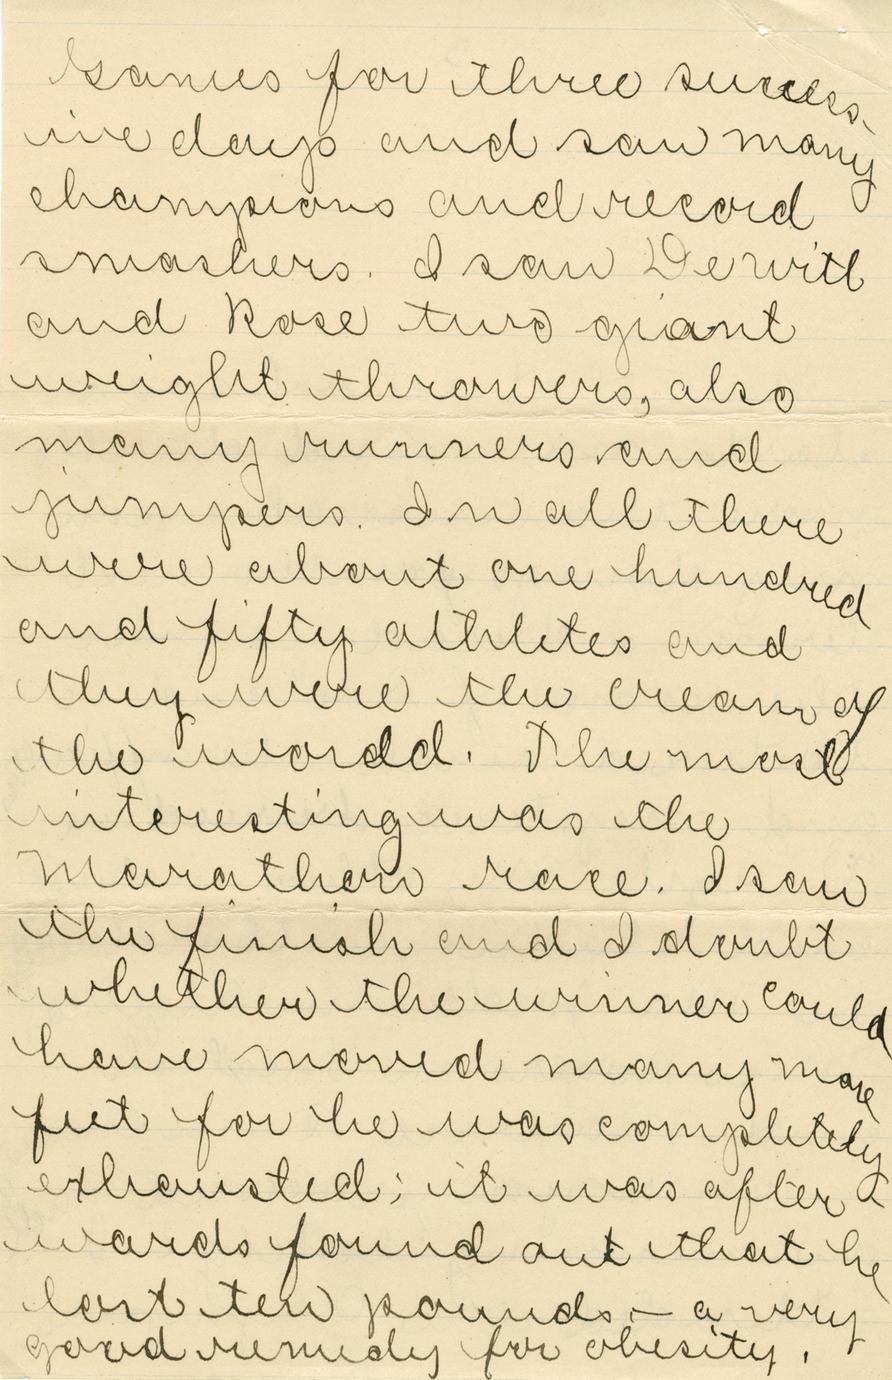 Games for three success-
ive days and saw many
champions and record
smashers. I saw De Witt
and Rose two giant
weight throwers, also
many runners and
jumpers. In all there
were about one hundred
and fifty athletes and
they were the cream of
the wordd. The most
interesting was the
Marathon race. I saw
the finish and I doubt
whether the winner could
have moved many more
feet for he was completely
exhausted; it was after-
wards found out that he
lost ten pounds, — a very
good remedy for obesity.